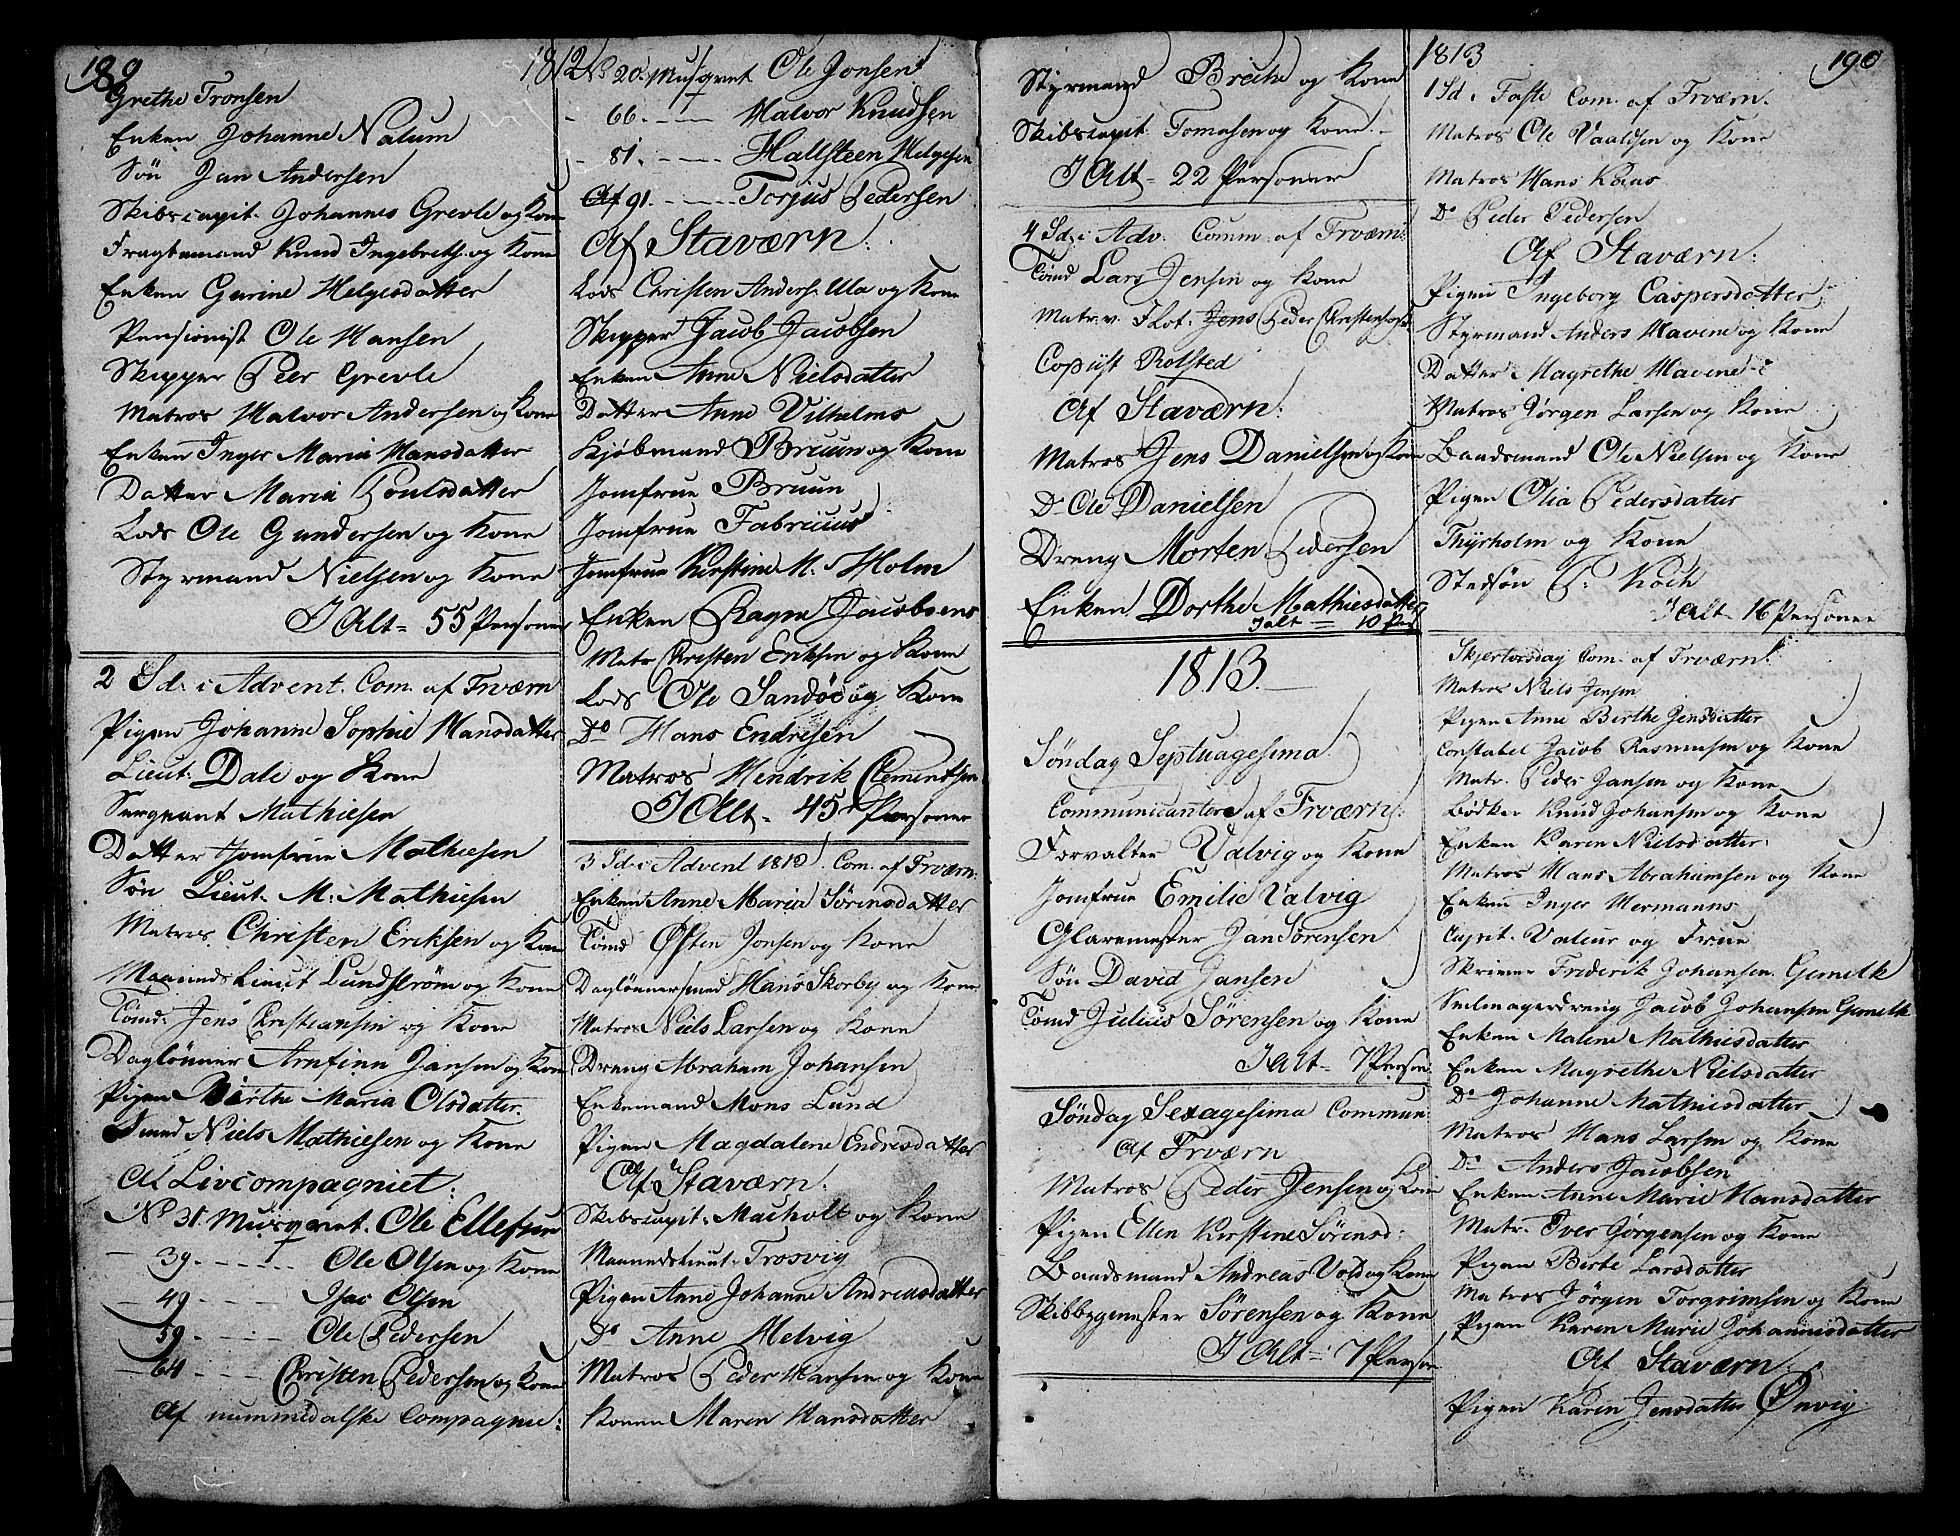 189
1812
Grethe Tronsen
Enken Johanne Nalum
Søn Jan Andersen
Skibscapit. Johannes Grevle og Kone
Fragtemand Knud Ingebreths. og Kone
Enken Gurine Helgesdatter
Pensionist Ole Hansen
Skipper Peer Grevle
Matros Halvor Andersen og Kone
Enken Inger Maria Hansdatter
Datter Maria Poulsdatter
Lods Ole Gundersen og Kone
Styrmand Nielsen og Kone
I Alt = 55 Personer
2 Sd: i Advent. Com. af Frværn
Pigen Johanne Sophie Hansdatter
Lieut: Dale og Kone
Sergeant Mathiesen
Datter Jomfrue Mathiesen
Søn Lieut. M: Mathiesen
Matros Christen Eriksen og Kone
Maaneds Lieut Lundstrøm og Kone
Tømd: Jens Christiansen og Kone
Daglønner Arnfinn Jansen og Kone
Pigen Birthe Maria Olsdatter
Smed Niels Mathiesen og Kone
Af Livcompagniet:
No 31. Musqvet. Ole Ellefsen
39. Ole Olsen og Kone
49 Isac Olsen
59 Ole Pedersen
64 Christen Pedersen og Kone
Af nummedalske Compagnie:
No 20. Musqvet Ole Jonsen
66. Halvor Knudsen
81. Hallsteen Helgesen
Af 91. Torjus Pedersen
Af Staværn:
Lods Christen Anders. Ula og Kone
Skipper Jacob Jacobsen
Enken Anne Nielsdatter
Datter Anne Vilhelms
Kjøbmand Bruun og Kone
Jomfrue Bruun
Jomfrue Fabricius
Jomfrue Kirstine M: Holm
Enken Ragne Jacobsens
Matr Christen Eriksen og Kone
Lods Ole Sandøe og Kone
Do Hans Endresen
Matros Hendrik Clementsen
I Alt = 45 Personer
3 Sd. i Advent 1812. Com. af Frværn:
Enken Anne Maria Sørensdatter
Tømd Østen Jonsen og Kone
Daglønnersmed Hans Skorby og Kone
Matros Niels Larsen og Kone
Dreng Abraham Johansen
Enkemand Mons Lund
Pigen Magdalene Endresdatter
Af Staværn:
Skibscapit: Macholt og Kone
Maanedslieut. Trosvig
Pigen Anne Johanne Andreasdatter
Do Anne Helvig
Matros Peder Hansen og Kone
Konen Maren Hansdatter
Styrmand Breche og Kone
Skibscapit. Tomesen og Kone
I Alt = 22 Personer
4 Sd: i Adv. Comm: af Frværn:
Tømd Lars Jensen og Kone
Matr. v. Flot: Jens Peder Christophers
Copiist Rolsted
Af Staværn:
Matros Jens Danielsen og Kone
Do Ole Danielsen
Dreng Morten Pedersen
Enken Dorthe Mathiesdatter
I alt = 10 Pers
1813.
Søndag Septuagesima
Communicantere af Frværn:
Forvalter Valvig og Kone
Jomfrue Emilie Valvig
Glarmester Jan Sørensen
Søn David Jansen
Tømd Julius Sørensen og Kone
I Alt = 7 Person
Søndag Sexagesima Commun:
Af Frværn
Matros Peder Jensen og Kone
Pigen Ellen Kirstine Sørensd:
Baadsmand Andreas Vold og Kone
Skibbygmester Sørensen og Kone
I Alt = 7 Person
1813
190
1 Sd. i Faste Com. af Frværn.
Matros Ole Vaaldsen og Kone
Matros Hans Kaas
Do Peder Pedersen
Af Staværn:
Pigen Ingeborg Caspersdatter
Styrmand Anders Mavene og Kone
Datter Magrethe Mavene
Matros Jørgen Larsen og Kone
Baadsmand Ole Nielsen og Kone
Pigen Olia Pedersdatter
Thyrholm og Kone
Stedsøn P: Koch
I Alt 16 Personer
Skjertorsdag Com. af Frværn:
Matros Niels Jensen
Pigen Anne Birthe Jensdatter
Constabel Jacob Rasmusen og Kone
Matr. Peder Jansen og Kone
Bødker Knud Johansen og Kone
Enken Karen Nielsdatter
Matros Hans Abrahamsen og Kone
Enken Inger Hermanns
Capit. Valeur og Frue
Skriver Friderik Johansen Gemelk
Seilmagerdreng Jacob Johansen Gemelk
Enken Malene Mathiesdatter
Enken Magrethe Nielsdatter
Do Johanne Mathiesdatter
Matros Hans Larsen og Kone
Do Anders Jacobsen
Enken Anne Marie Hansdatter
Matr. Iver Jørgensen og Kone
Pigen Birte Larsdatter
Matros Jørgen Torgrimsen og Kone
Pigen Karen Marie Johannisdatter
Af Staværn:
Pigen Karen Jensdatter Ønvig